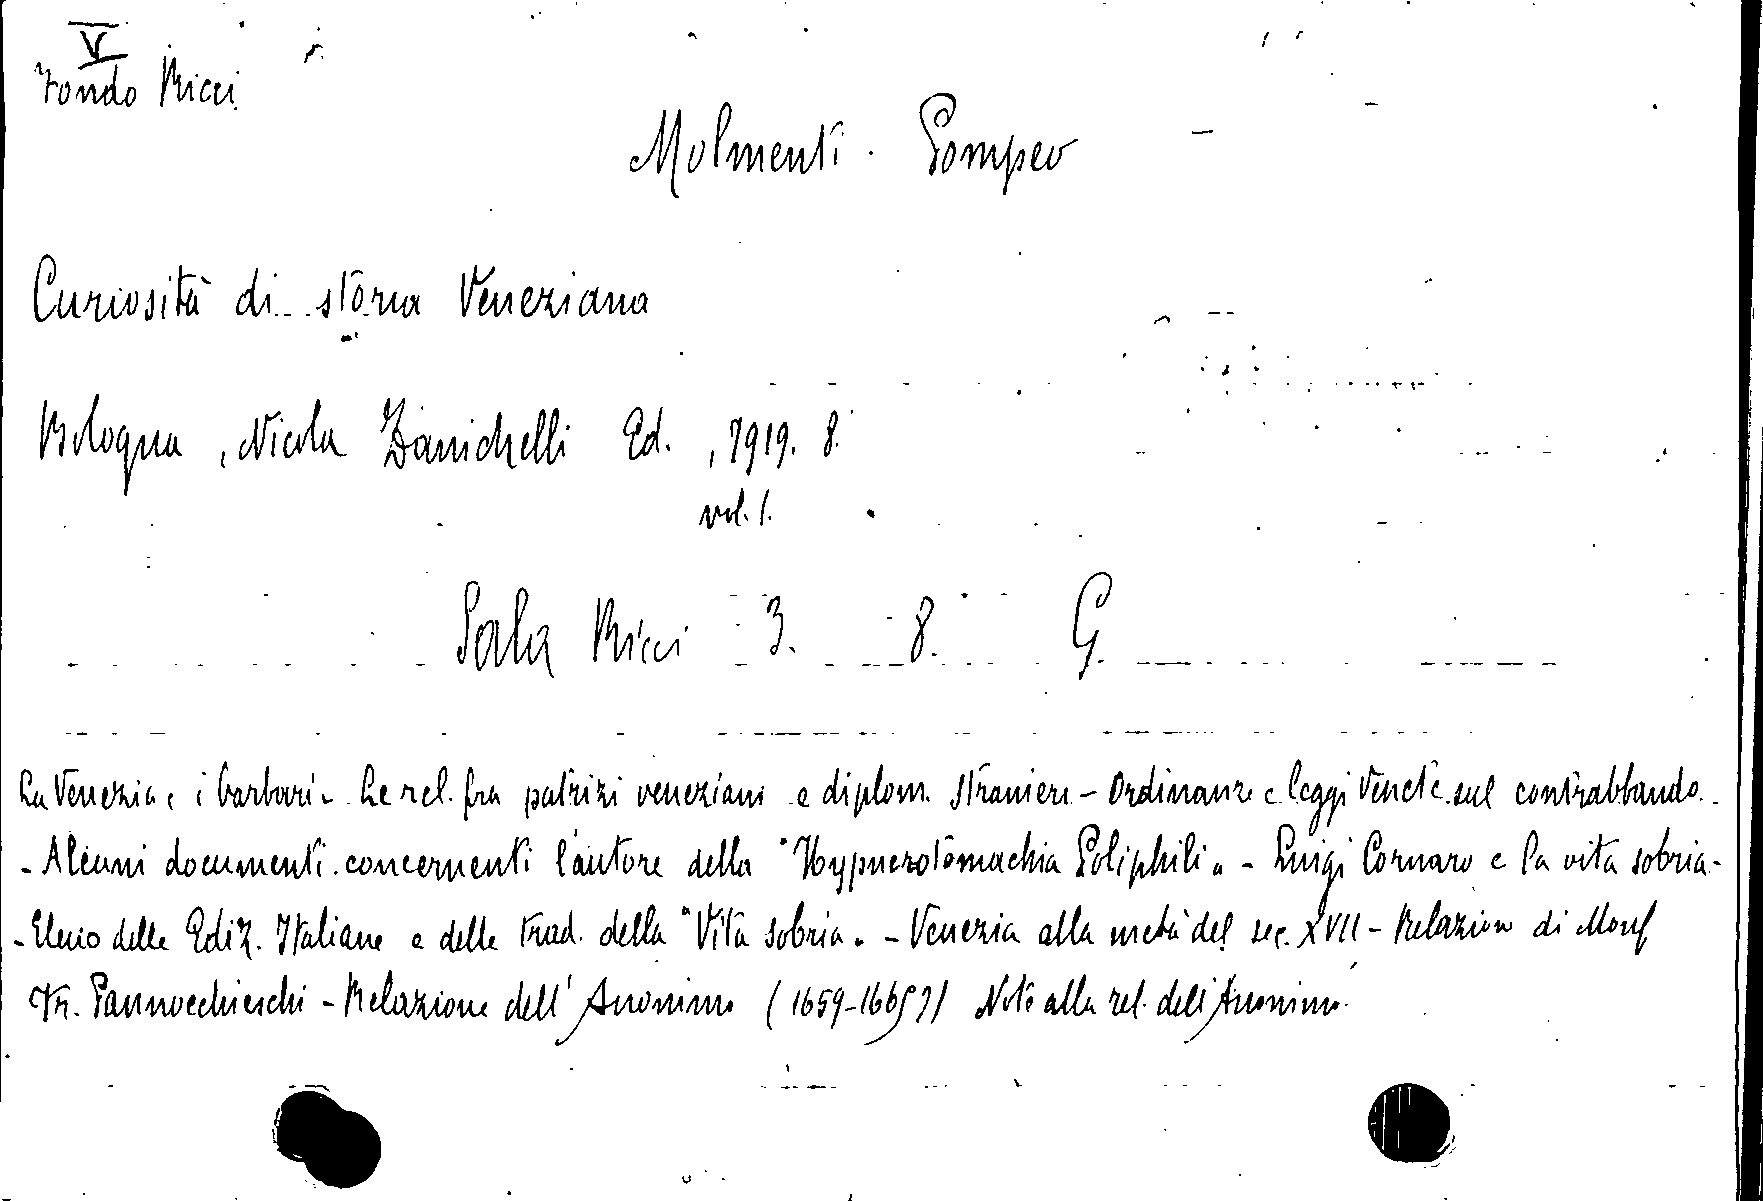 V
Fondo Ricci
Molmenti Pompeo
Curiosità di storia Veneziana
Bologna, Nicola Zanichelli Ed., 1919. 8.
vol. 1.
Sala Ricci 3. 8. G.
La Venezia e i barbari - Le rel. fra patrizi veneziani e diplom. stranieri - Ordinanze e leggi Venete sul contrabbando.
- Alcuni documenti concernenti l'autore della "Hypnerotomachia Poliphili" - Luigi Cornaro e la vita sobria -
- Elenco delle Ediz. Italiane e delle trad. della "Vita sobria" - Venezia alla metà del sec. XVII - Relazione di Mons
Fr. Pannocchieschi - Relazione dell'Anonimo (1659-1665?) Note alla rel. dell'Anonimo.